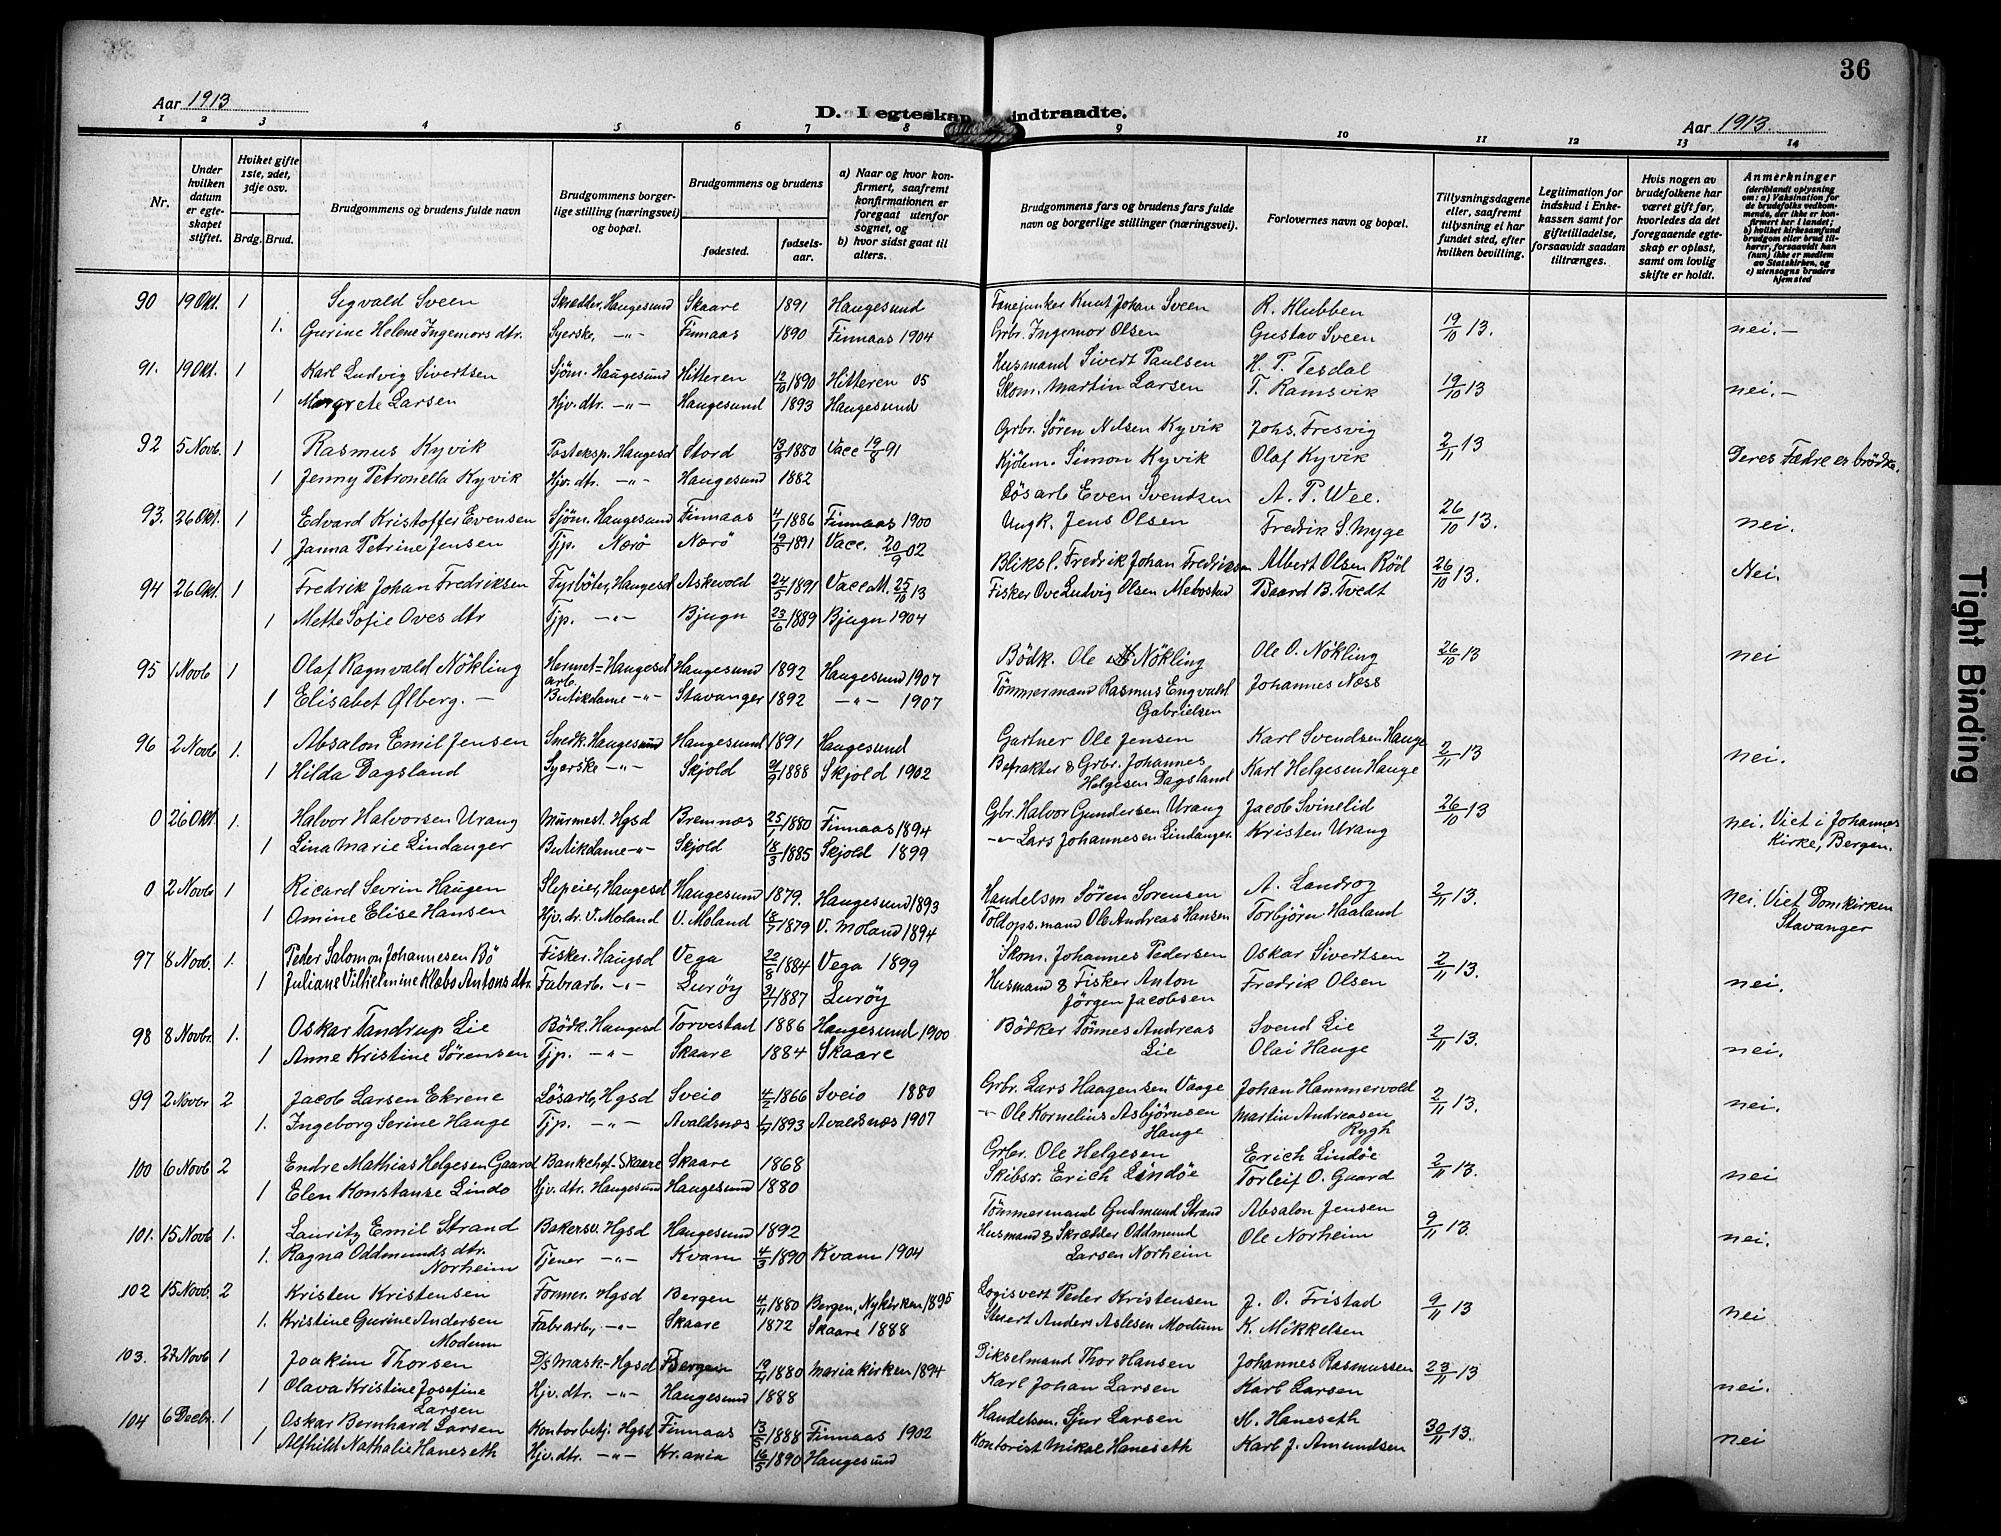 36
Aar 1913
D. I egteskap indtraadte.
Aar 1913.
1 2 3 4 5 6 7 8 9 10 11 12 13 14
Nr.
Under hvilken datum er egteskapet stiftet.
Hviket gifte 1ste, 2det, 3dje osv.
Brdg. Brud.
Brudgommens og brudens fulde navn
Brudgommens borgerlige stilling (næringsvei) og bopæl.
Brudgommens og brudens
fødested.
fødselsaar.
a) Naar og hvor konfirmert, saafremt konfirmationen er foregaat utenfor sognet, og
b) hvor sidst gaat til alters.
Brudgommens fars og brudens fars fulde navn og borgerlige stillinger (næringsvei).
Forlovernes navn og bopæl.
Tillysningsdagene eller, saafremt tillysning ei har fundet sted, efter hvilken bevilling.
Legitimation for indskud i Enkekassen samt for giftetilladelse, forsaavidt saadan tiltrænges.
Hvis nogen av brudefolkene har været gift før, hvorledes da det foregaaende egteskap er opløst, samt om lovlig skifte er holdt.
Anmerkninger (deriblandt oplysning om: a) Vaksination for de brudefolks vedkommende, der ikke er konfirmert her i landet; b) hvilket kirkesamfund brudgom eller brud tilhører, forsaavidt han (hun) ikke er medlem av Statskirken, og c) utensogns bruders hjemsted
90 19 Okt. 1 Sigvald Sveen Skrædder, Haugesund Skaare 1891 Haugesund Fanejunker Knut Johan Sveen R. Klubben 19/10 13. nei.-
1. Gurine Helene Ingemors dtr. Syerske, -"- Finnaas 1890 Finnaas 1904 Grbr. Ingemor Olsen Gustav Sveen
91. 19 Okt. 1 Karl Ludvig Sivertsen Sjöm. Haugesund Hitteren 12/10 1890 Hitteren 05 Husmand Sivert Paulsen H. T. Tesdal 19/10 13 nei.-
1 Margrete Larsen Hjv. dtr. -"- Haugesund 1893 Haugesund Skom. Martin Larsen T. Ramsvik
92 5 Novb. 1 Rasmus Kyvik Posteksp. Haugesd Stord 13/9 1880 Vacc 19/8 91 Grbr. Sören Nilsen Kyvik Johs. Fresvig 2/11 13 Deres Fædre er brödre.
1 Jenny Petronella Kyvik Hjv. dtr. -"- Haugesund 1882 Kjöbm. Simon Kyvik Olaf Kyvik
93. 26 Okt. 1 Edvard Kristoffer Evensen Sjöm. Haugesund Finnaas 4/1 1886 Finnaas 1900 Lösarb Even Svendsen A. P. Wee. 26/10 13. nei.
1 Janna Petrine Jensen Tjp. Nærö Nærö 19/5 1891 Vacc. 20/9 02 Ungk. Jens Olsen Fredrik S. Myge
94 26 Okt. 1 Fredrik Johan Fredriksen Fyrböter, Haugesd Askevold 24/5 1891 Vacc att. 25/10 13 Bliksl. Fredrik Johan Fredriksen Albert Olsen Röd 26/10 13. Nei.
1 Mette Sofie Oves dtr Tjp. -"- Bjugn 23/6 1889 Bjugn 1904 Fisker Ove Ludvig Olsen Mebostad Baard B. Tvedt
95 1 Novb 1 Olaf Ragnvald Nökling Hermet=arb. Haugesd Haugesund 1892 Haugesund 1907 Bödk. Ole Nökling Ole O. Nökling 26/10 13 nei
1 Elisabet Ølberg. - Butikdame -"- Stavanger 1892 -"- 1907 Tömmermand Rasmus Engvald Gabrielsen Johannes Næss
96 2 Novb 1. Absalon Emil Jensen Snedk. Haugesund Haugesund 1891 Haugesund Gartner Ole Jensen Karl Svendsen Hauge 2/11 13 nei.
1 Hilda Dagsland Syerske -"- Skjold 1888 Skjold 1902 Befrakter & Grbr. Johannes Helgesen Dagsland Karl Helgesen Hauge
0 26 Okt. 1. Halvor Halvorsen Urang Murmest. Hgsd Bremnes 25/1 1880 Finnaas 1894 Gbr. Halvor Gundersen Urang Jacob Svinelid 26/10 13 nei. Viet i Johannes
1 Lina Marie Lindanger Butikdame -"- Skjold 18/3 1885 Skjold 1899 -"- Lars Johannesen Lindanger. Kristen Urang Kirke, Bergen.
0 2 Novbr 1 Ricard Sevrin Haugen Slepeier, Haugesd Haugesund 1879. Haugesund 1893 Handelsm Sören Sörensen A. Landrog 2/11 13. nei. Viet Domkirken
1 Amine Elise Hansen Hjv. dr. V. Moland V. Moland 18/7 1879 V. Moland 1894 Toldops.mand Ole Andreas Hansen Torbjörn Haaland Stavanger
97 8 Novb. 1. Peder Salomon Johannesen Bö Fisker. Haugsd Vega 22/8 1884 Vega 1899 Skom. Johannes Pedersen Oskar Sivertsen 2/11 13. nei.
1 Juliane Vilhelmine Klæbo Antons dtr. Fabrarb. -"- Luröy 1887 Luröy Husmand & Fisker Anton Jörgen Jacobsen Fredrik Olsen
98 8 Novbr. 1. Oskar Tandrup Lie Bödk. Haugesd Torvestad 1886 Haugesund 1900 Bödker Tönnes Andreas Lie Svend Lie 2/11 13. nei.
1 Anne Kristine Sörensen Tjp. -"- Skaare 1884 Skaare Olai Hauge
99 2 Novbr 2 Jacob Larsen Ekrene Lösarb, Hgsd Sveio 4/2 1866 Sveio 1880 Grbr. Lars Haagensen Vaage Johan Hammervold 2/11 13. nei.
1. Ingeborg Serine Hauge Tjp. -"- Avaldsnæs 1893 Avaldsnæs 1907 -"- Ole Kornelius Asbjörnsen Hauge Martin Andreasen Rygh
100 6 Novb 2 Endre Mathias Helgesen Gaard Bankchef. Skaare Skaare 1868 Grbr. Ole Helgesen Erich Lindöe 2/11 13. nei
1 Elen Konstanse Lindö Hjv. dtr. Haugesund Haugesund 1880 Skibsr. Erich Lindöe Torleif O. Gaard
101. 15 Novb 1. Lauritz Emil Strand Bakersv. Hgsd Haugesund 1892 Tömmermand Gudmund Strand Absalon Jensen 9/11 13. nei.
1. Ragna Oddmunds dtr. Norheim Tjener -"- Kvam 4/3 1890 Kvam 1904 Husmand & Skrædder Oddmund Larsen Norheim Ole Norheim
102 15 Novb. 2 Kristen Kristensen Former. Hgsd Bergen 4/11 1880 Bergen, Nykirken 1895 Logisvert Peder Kristensen J. O. Fristad 9/11 13 nei
1. Kristine Gurine Andersen Modum Fabrarb, -"- Skaare 1872 Skaare 1888 Stuert Anders Aslesen Modum K. Mikkelsen
103. 27 Novb 1 Joakim Thorsen D/s Mask- Hgsd Bergen 19/4 1880 Mariakirken 1894 Bikselmand Thor Hansen Johannes Rasmussen 23/11 13 nei.
1 Olava Kristine Josefine Larsen Hjv. dtr. -"- Haugesund 1888 Karl Johan Larsen Karl Larsen
104 6 Decbr. 1 Oskar Bernhard Larsen Kontorbetj. Hgsd Finnaas 13/5 1888 Finnaas 1902 Handelsm. Sjur Larsen M. Haneseth 30/11 13. nei
1 Alfhild Nathalie Haneseth Hjv. dtr. -"- Kr.ania 16/5 1890 Haugesund Kontorist Mikal Haneseth Karl J. Amundsen
Tight Binding